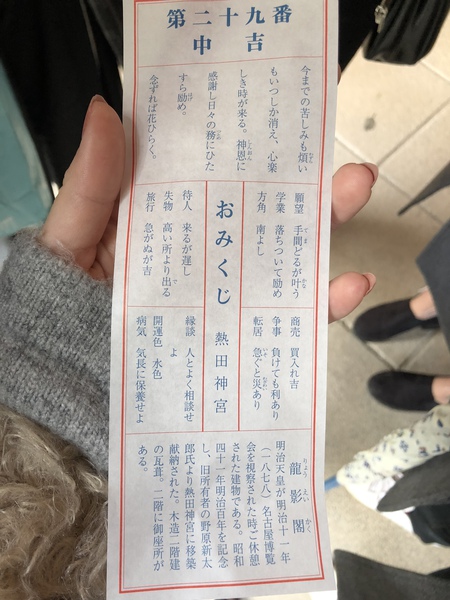 第二十九番
中吉
今までの苦しみも煩い
もいつしか消え、心楽
しき時が来る。神恩に
感謝し日々の務にひた
すら励め。
念ずれば花ひらく。
願望 手間どるが叶う
学業 落ちついて励め
方角 南よし
おみくじ 熱田神宮
待人 来るが遅し
失物 高い所より出る
旅行 急がぬが吉
商売 買入れ吉
争事 負けても利あり
転居 急ぐと災あり
縁談 人とよく相談せ
よ
開運色 水色
病気 気長に保養せよ
龍影閣
明治天皇が明治十一年
（一八七八）名古屋博覧
会を視察された時ご休憩
された建物である。昭和
四十一年明治百年を記念
し、旧所有者の野原新太
郎氏より熱田神宮に移築
献納された。木造二階建
の瓦葺。二階に御座所が
ある。